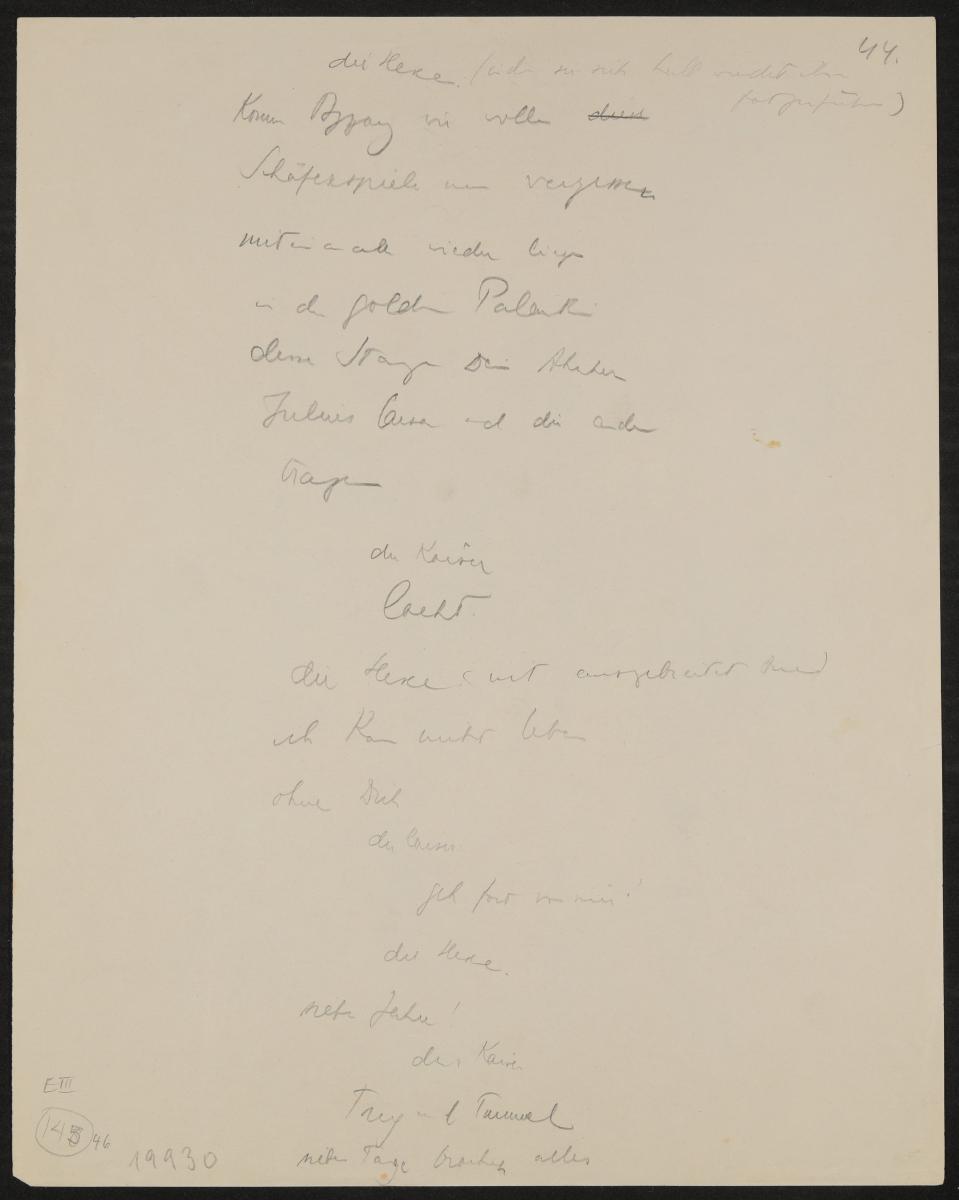 44.
die Hexe. (
fortzuführen)
Komm wir wollen
Schäferspiele nun vergessen
miteinander wieder liegen
in der goldenen Palankin
dessen Stangen Dein Ahnherr
Julius Caesar und die andern
tragen
der Kaiser
lacht.
die Hexe (mit ausgebreiteten Armen)
ich kann nicht leben
ohne Dich
der Kaiser
geh fort von mir!
die Hexe.
sieben Jahre!
der Kaiser
Trug und Taumel
sieben Tage brachen alles
E III
145 46
19930